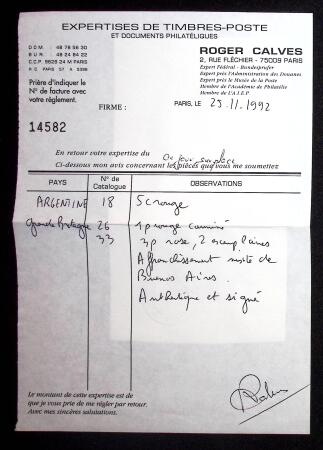 EXPERTISES DE TIMBRES-POSTE
ET DOCUMENTS PHILATÉLIQUES
DOM: 48 78 56 30
BUR: 48 24 84 22
C.C.P. 9625 24 M PARIS
R C PARIS 57 A 2356
ROGER CALVES
2, RUE FLÉCHIER - 75009 PARIS
Expert Fédéral - Bundesprüfer
Expert près l'Administration des Douanes
Expert près le Musée de la Poste
Membre de l'Académie de Philatélie
Membre de l'A.I.E.P.
Prière d'indiquer le
N° de facture avec
votre règlement.
FIRME:
PARIS, LE 23.11.1992
14582
En retour votre expertise du
Ci-dessous mon avis concernant les pièces que vous me soumettez
PAYS N° de Catalogue OBSERVATIONS
ARGENTINE 18 5c rouge
Grande Bretagne 26 1p rouge carminé
33 3p rose, 2 exemplaires
Affranchissement mixte de
Buenos Aires.
Authentique et signé
Le montant de cette expertise est de
que je vous prie de me régler par retour.
Avec mes sincères salutations.